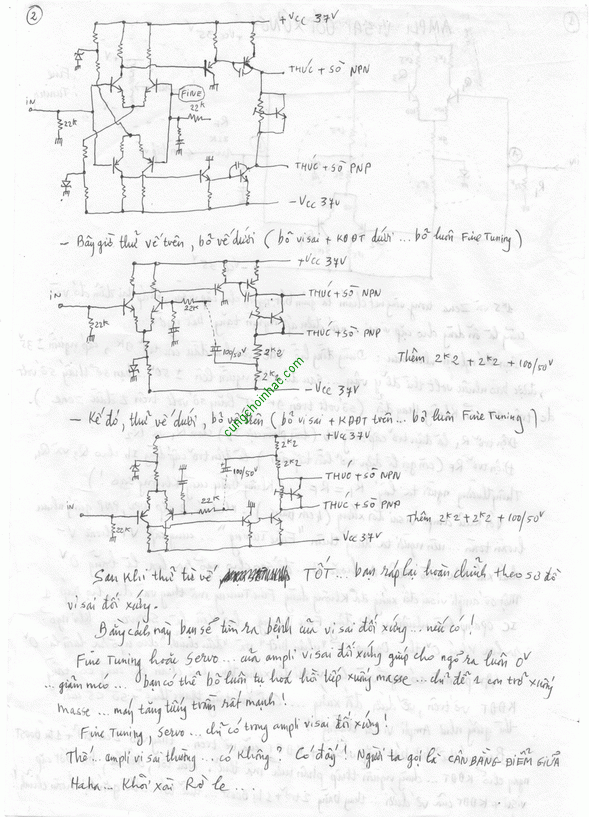 2
+Vcc 37V
THÚC + SÒ NPN
FINE
iN
22K
22K
THÚC + SÒ PNP
- Vcc 37V
- Bây giờ thử vế trên, bỏ vế dưới (bỏ visai + KĐĐT dưới ... bỏ luôn Fine Tuning)
+Vcc 37V
iN
22K
22K
THÚC + SÒ NPN
THÚC + SÒ PNP
100/50V
2K2
2K2
Thêm 2K2 + 2K2 + 100/50V
- Vcc 37V
cungchoinhac.com
- Kế đó, thử vế dưới, bỏ vế trên (bỏ visai + KĐĐT trên ... bỏ luôn Fine Tuning)
+Vcc 37V
2K2
2K2
100/50V
THÚC + SÒ NPN
22K
THÚC + SÒ PNP
iN
22K
Thêm 2K2 + 2K2 + 100/50V
- Vcc 37V
Sau khi thử từ vế TỐT ... bạn ráp lại hoàn chỉnh theo sơ đồ
vi sai đối xứng.
Bằng cách này bạn sẽ tìm ra bệnh của vi sai đối xứng ... nếu có!
Fine Tuning hoặc Servo ... của ampli vi sai đối xứng giúp cho ngõ ra luôn 0V
... giảm méo ... bạn có thể bỏ luôn tụ hoá hồi tiếp xuống masse ... chỉ để 1 con trở xuống
masse ... máy tăng tiếng trầm rất mạnh!
Fine Tuning, servo ... chỉ có trong ampli visai đối xứng!
Thế ... ampli vi sai thường ... có không? Có đấy! Người ta gọi là CÂN BẰNG ĐIỂM GIỮA
Haha ... Khỏi xài Rờ le ....